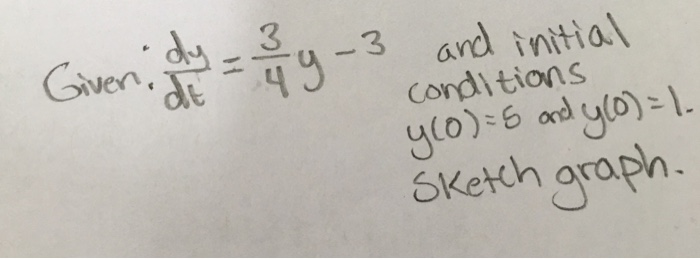 Given: dy/dt = 3/4 y - 3 and initial
conditions
y(0)=5 and y(0)=1.
Sketch graph.